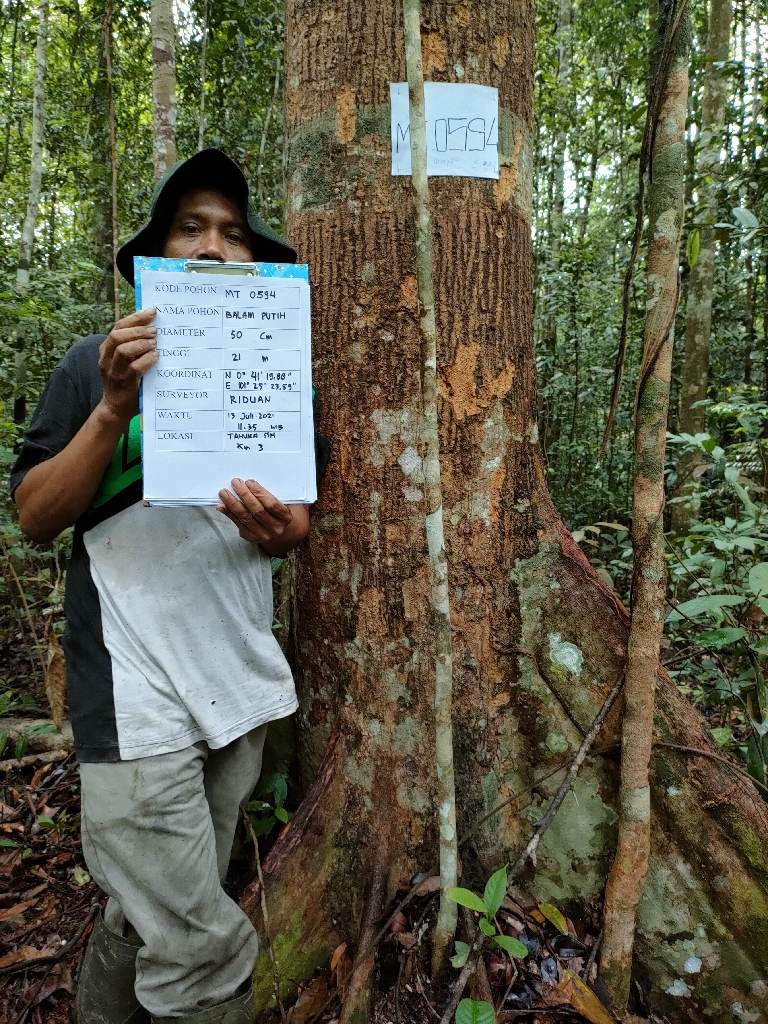 MT 0594
KODE POHON MT 0594
NAMA POHON BALAM PUTIH
DIAMETER 50 Cm
TINGGI 21 m
KOORDINAT N 0° 41' 19.88"
E 101° 25' 23.59"
SURVEYOR RIDUAN
WAKTU 13 Juli 2021
11.35 WIB
LOKASI TAHURA SSH
Km 3